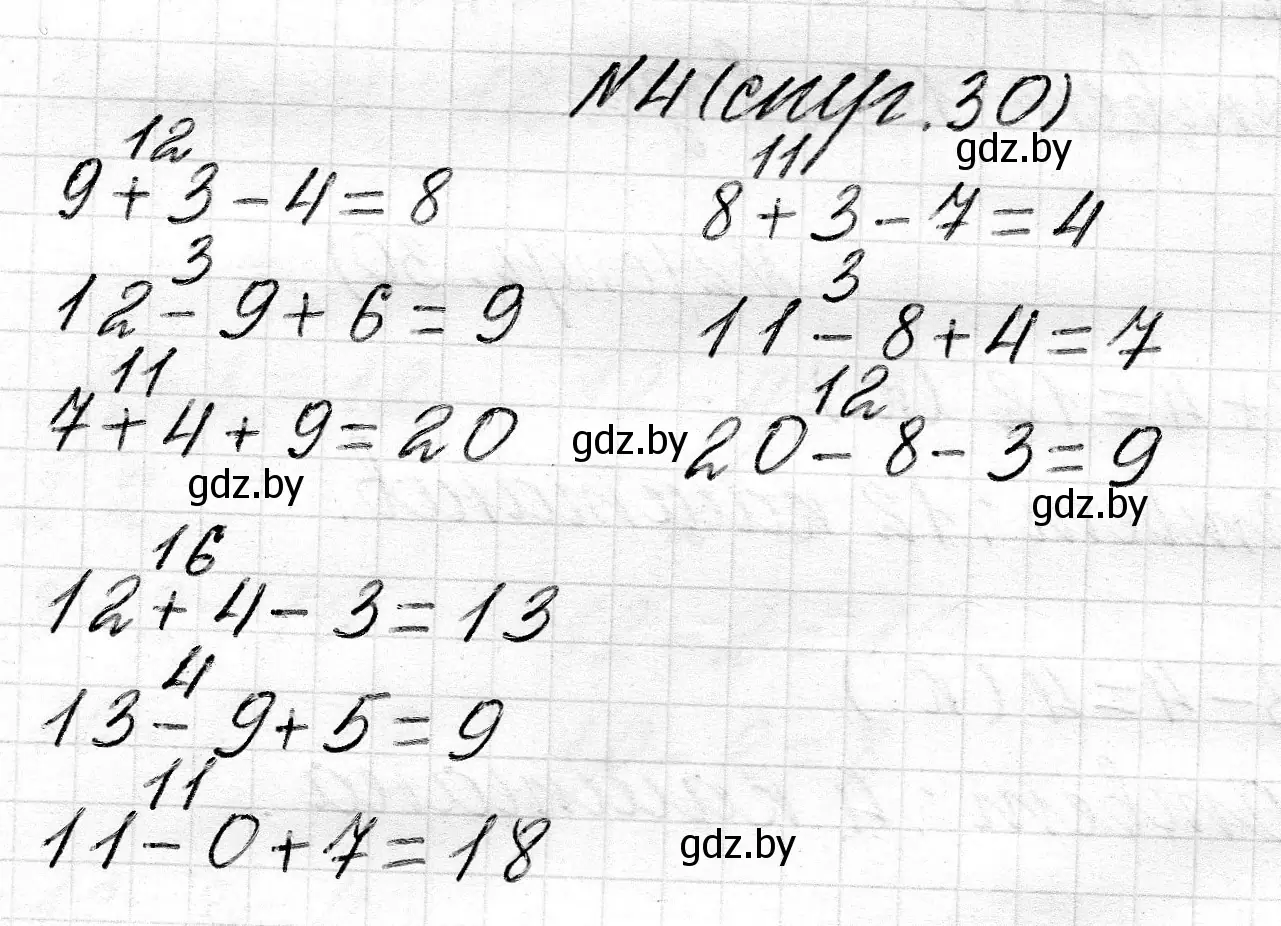 №4 (стр. 30)
gdz.by
12
9 + 3 - 4 = 8
11
8 + 3 - 7 = 4
3
12 - 9 + 6 = 9
3
11 - 8 + 4 = 7
11
7 + 4 + 9 = 20
12
20 - 8 - 3 = 9
gdz.by
gdz.by
gdz.by
16
12 + 4 - 3 = 13
4
13 - 9 + 5 = 9
11
11 - 0 + 7 = 18
gdz.by